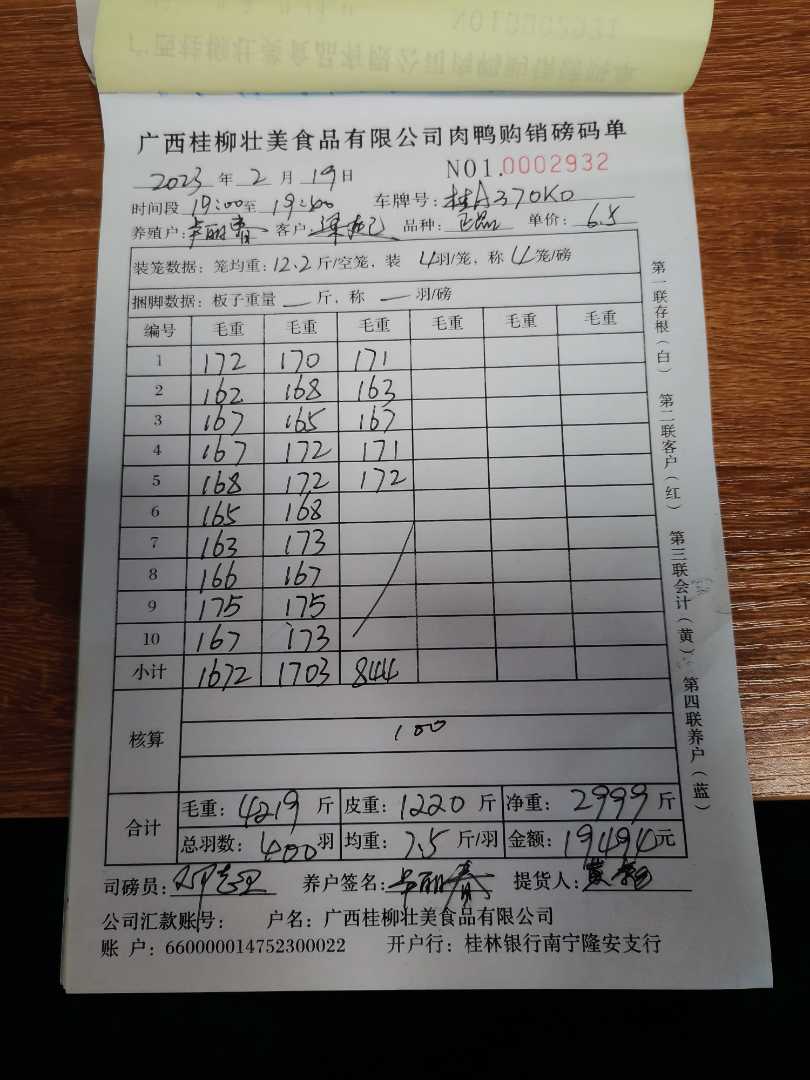 广西桂柳壮美食品有限公司肉鸭购销磅码单
NO1.0002932
2023 年 2 月 19 日
时间段 19:00至 19:40 车牌号: 桂A370K0
养殖户: 卢丽春 客户: 品种: 正品 单价: 6.5
装笼数据: 笼均重: 12.2 斤/空笼, 装 4羽/笼, 称 4笼/磅
捆脚数据: 板子重量 — 斤, 称 — 羽/磅
编号 毛重 毛重 毛重 毛重 毛重 毛重
1 172 170 171
2 162 168 163
3 167 165 167
4 167 172 171
5 168 172 172
6 165 168
7 163 173
8 166 167
9 175 175
10 167 173
小计 1672 1703 844
核算 100
合计 毛重: 4219 斤 皮重: 1220 斤 净重: 2999 斤
总羽数: 400羽 均重: 7.5 斤/羽 金额: 19494元
司磅员: 养户签名: 卢丽春 提货人:
公司汇款账号: 户名: 广西桂柳壮美食品有限公司
账 户: 660000014752300022 开户行: 桂林银行南宁隆安支行
第一联存根(白) 第二联客户(红) 第三联会计(黄) 第四联养户(蓝)